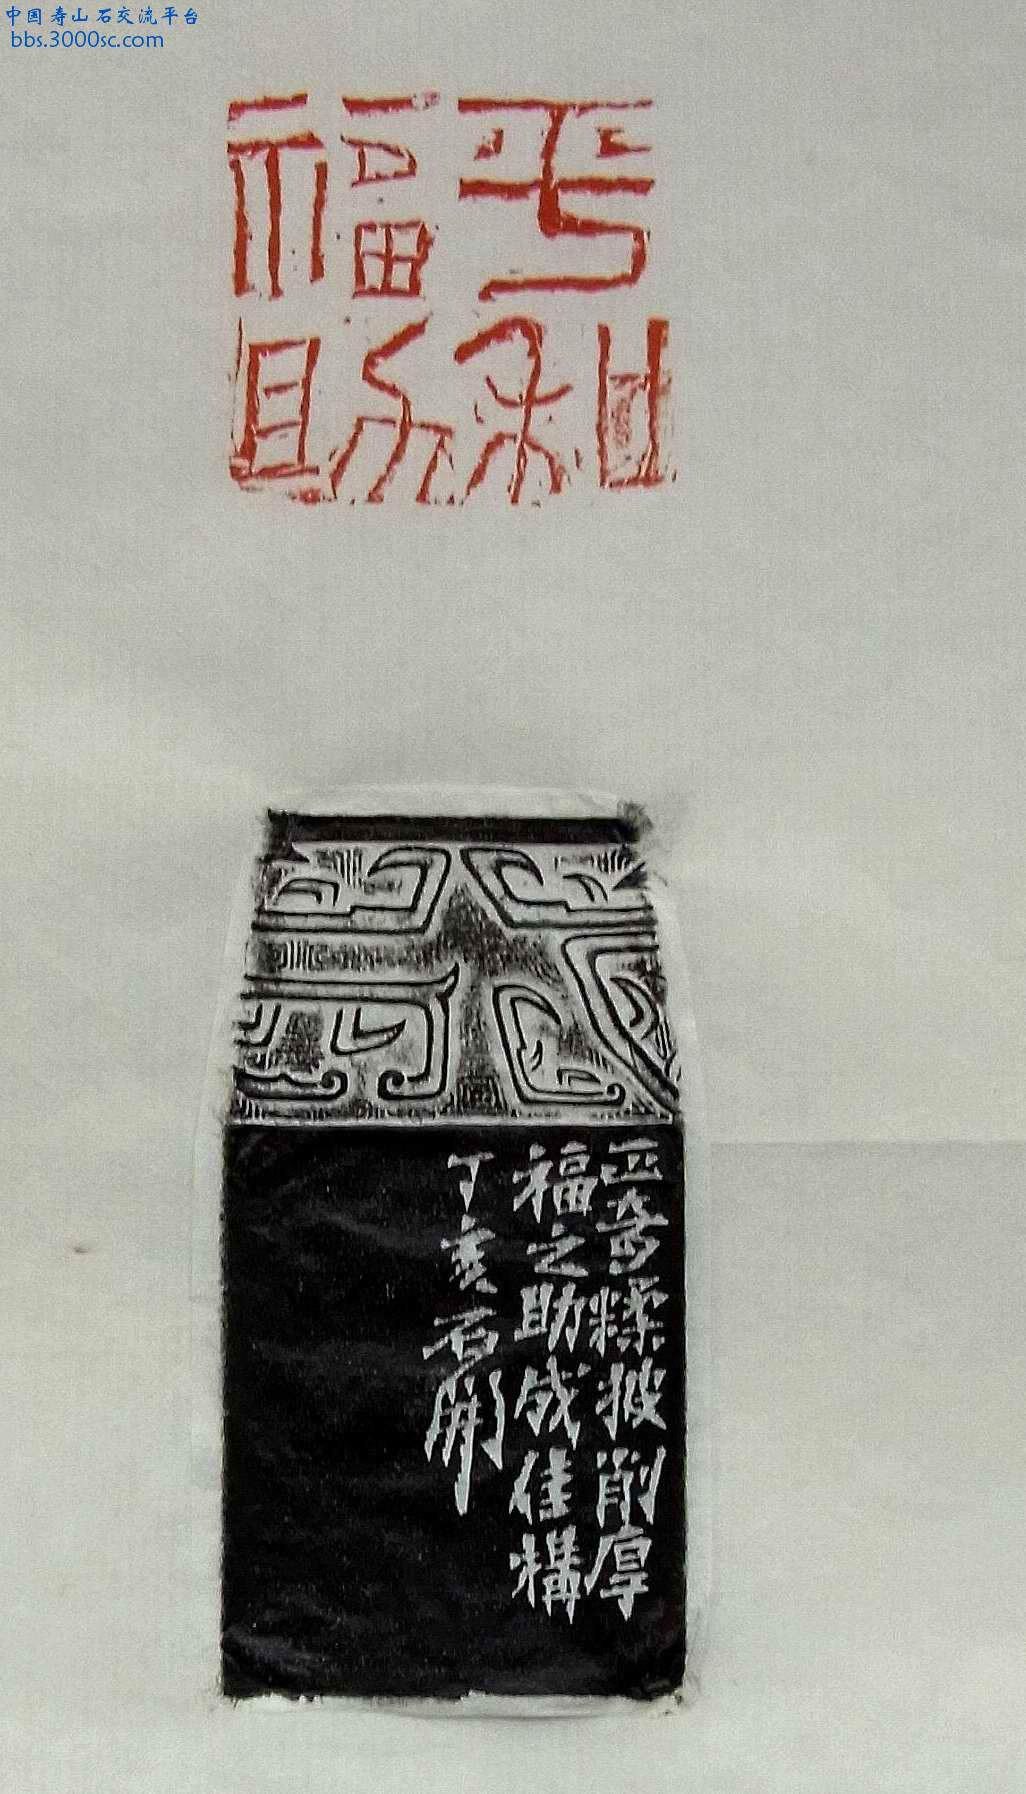 中国寿山石交流平台
bbs.3000sc.com
平和
福助
奇糅披削厚
福之助成佳構
丁亥石開